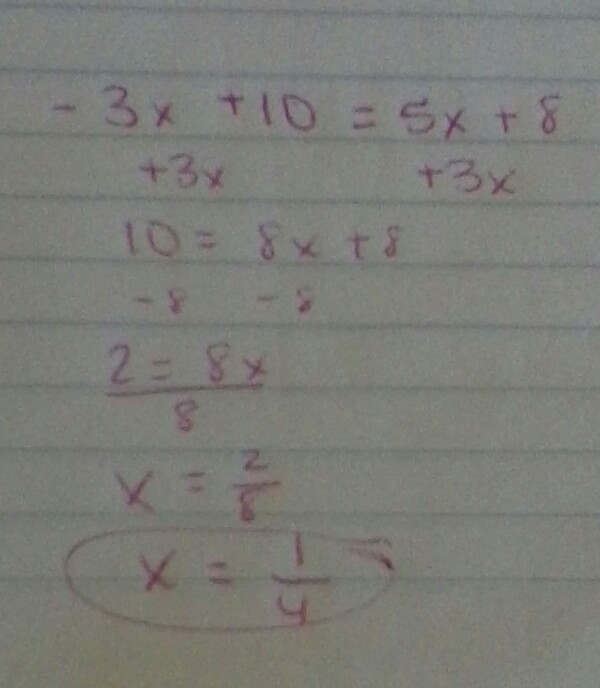 - 3x + 10 = 5x + 8
+3x +3x
10 = 8x + 8
- 8 - 8
2 = 8x
8
x = 2/8
x = 1/4